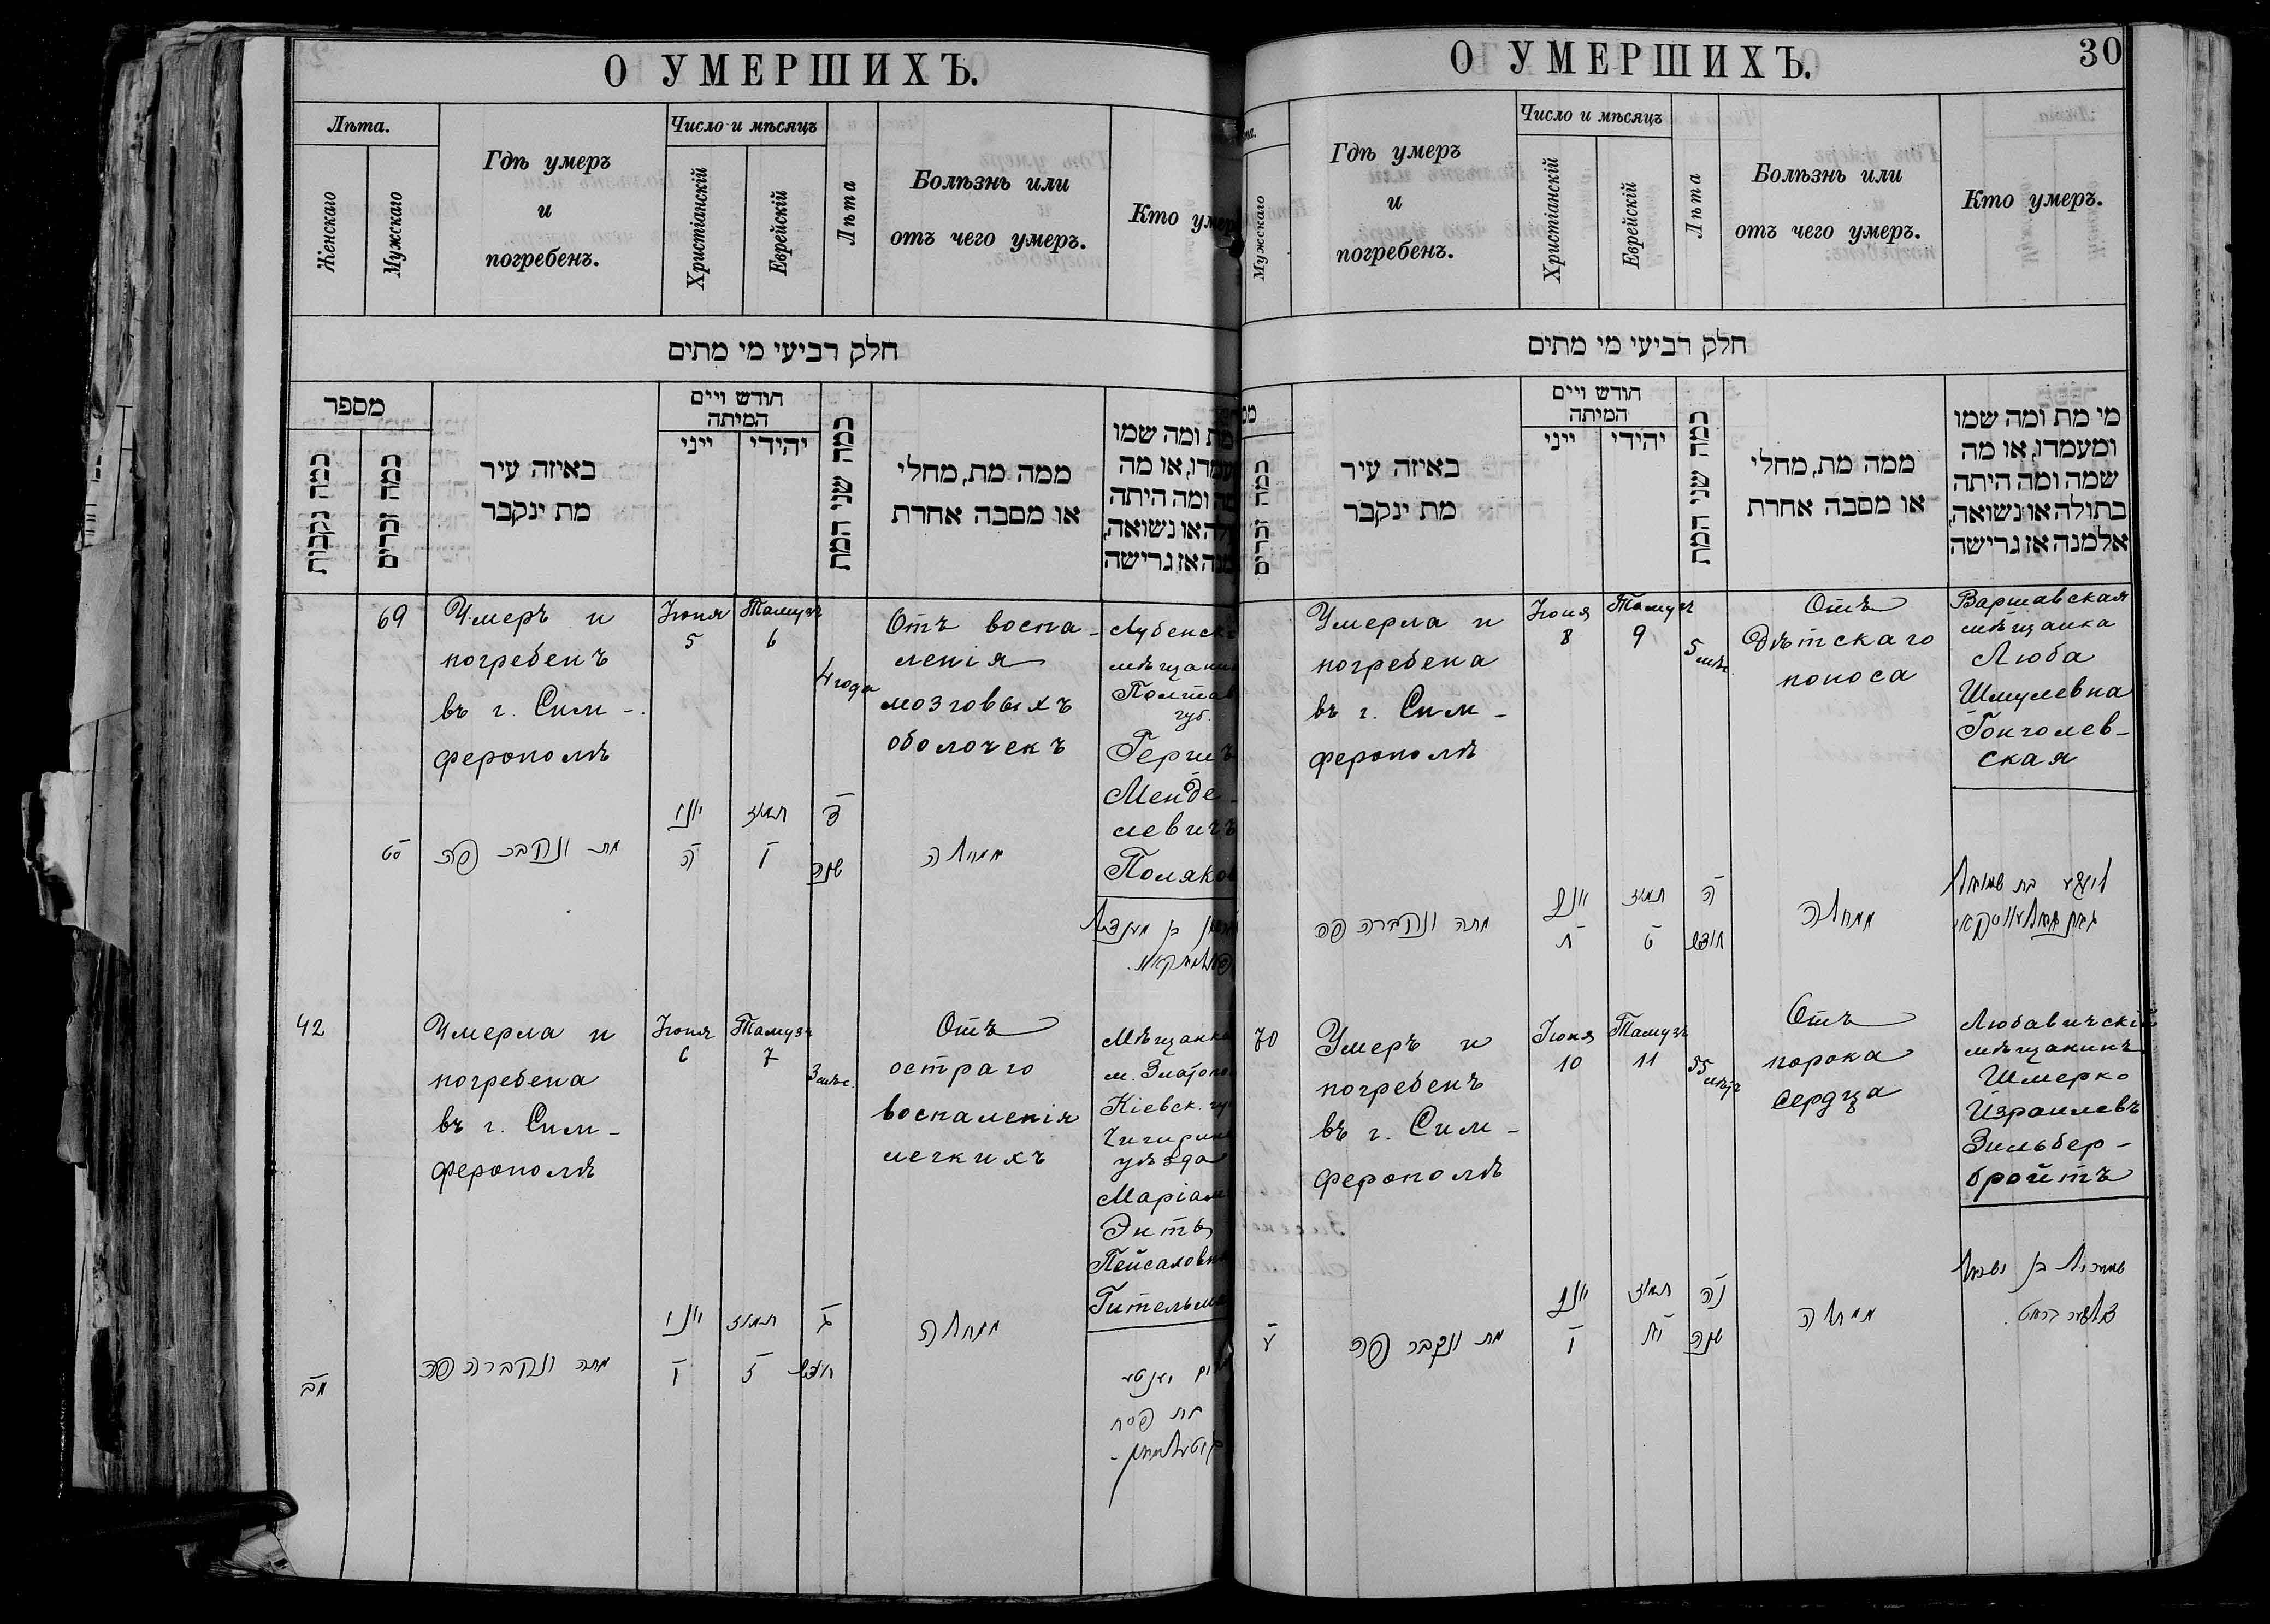 О УМЕРШИХЪ.
Лѣта.
Женскаго
Мужскаго
Гдѣ умеръ
и
погребенъ.
Число и мѣсяцъ
Христіанскій
Еврейскій
Лѣта
Болѣзнь или
отъ чего умеръ.
Кто умер
חלק רביעי מי מתים
מספר
כמה נקבות
כמה זכרים
באיזה עיר
מת ינקבר
חודש ויים
המיתה
ייני
יהידי
כמה שני המת
ממה מת, מחלי
או מסבה אחרת
מת ומה שמו
ומה היתה
או נשואה,
אז גרישה
69
Умеръ и
погребенъ
въ г. Сим-
ферополѣ
Іюня
5
Тамузъ
6
4 года
Отъ воспа-
ленія
мозговыхъ
оболочекъ
Лубенск
мѣщанин
Полтав
губ.
Герш
Менде-
левичъ
Поляков
סט
מת ונקבר פה
יוני
ה
תמוז
ו
ד
שנה
ממחלה
42
Умерла и
погребена
въ г. Сим-
ферополѣ
Іюня
6
Тамузъ
7
3 мѣс.
Отъ
остраго
воспаленія
легкихъ
Мѣщанка
м. Златопо
Кіевск. гу
Чигирин
уѣзда
Маріам
Энтя
Пейсаховн
Гительм
מב
מתה ונקברה פה
יוני
ו
תמוז
ז
ג
חודש
ממחלה
בת פסח
О УМЕРШИХЪ.
30
Мужскаго
Гдѣ умеръ
и
погребенъ.
Число и мѣсяцъ
Христіанскій
Еврейскій
Лѣта
Болѣзнь или
отъ чего умеръ.
Кто умеръ.
חלק רביעי מי מתים
כמה זכרים
באיזה עיר
מת ינקבר
חודש ויים
המיתה
ייני
יהידי
כמה שני המת
ממה מת, מחלי
או מסבה אחרת
מי מת ומה שמו
ומעמדו, או מה
שמה ומה היתה
בתולה או נשואה,
אלמנה אז גרישה
Умерла и
погребена
въ г. Сим-
ферополѣ
Іюня
8
Тамузъ
9
5 мѣс.
Отъ
дѣтскаго
поноса
Варшавская
мѣщанка
Люба
Шмулевна
Гончолев-
ская
מתה ונקברה פה
ח
תמוז
ט
ה
חודש
ממחלה
בת שמואל
70
Умеръ и
погребенъ
въ г. Сим-
ферополѣ
Іюня
10
Тамузъ
11
55
лѣтъ
Отъ
порока
сердца
Любавичскій
мѣщанинъ
Шмерко
Израилевъ
Зильбер-
бройтъ
ע
מת ונקבר פה
י
תמוז
יא
נה
שנה
ממחלה